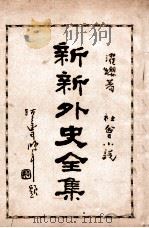 濯纓著
社會小說
新新外史全集
題